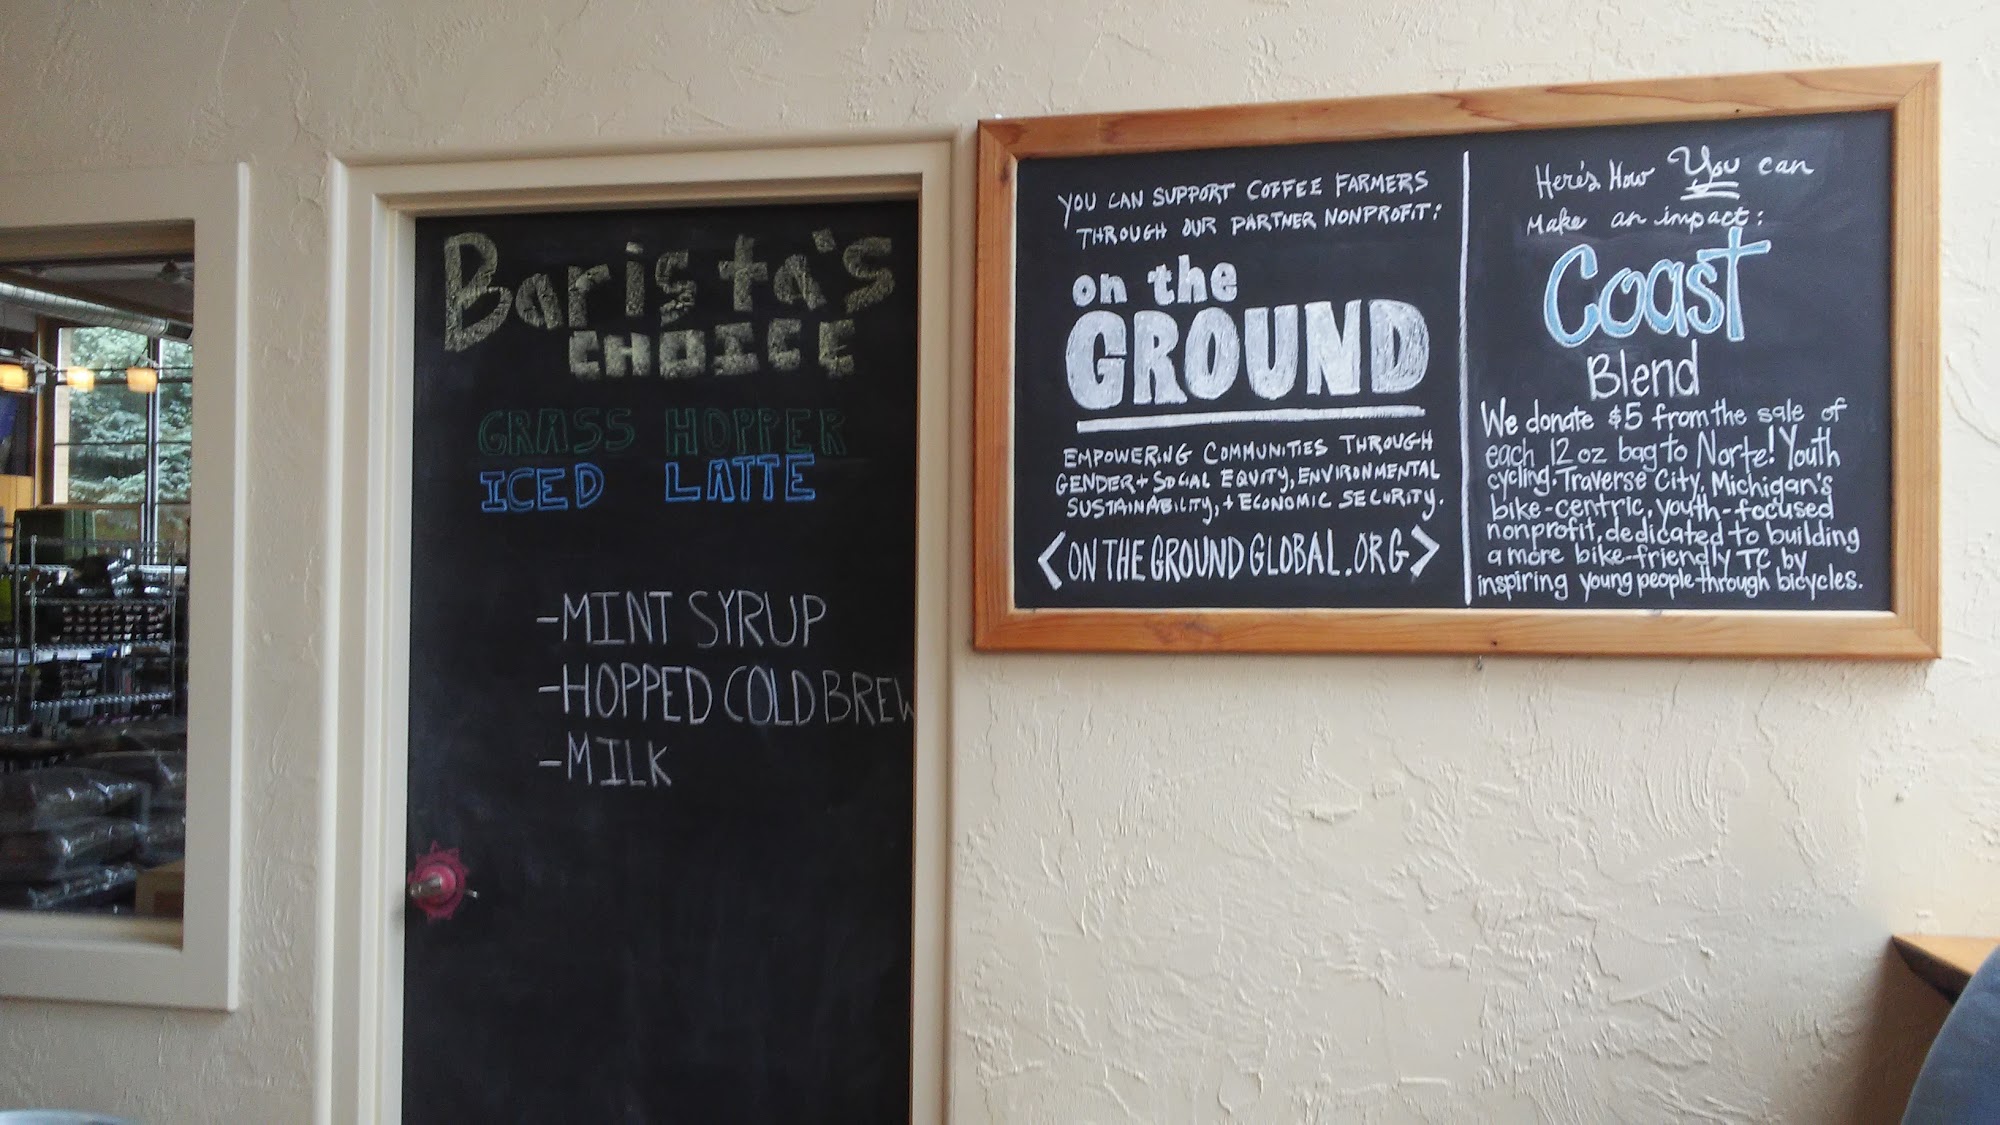 Barista's
CHOICE
GRASS HOPPER
ICED LATTE
-MINT SYRUP
-HOPPED COLD BREW
-MILK
YOU CAN SUPPORT COFFEE FARMERS
THROUGH OUR PARTNER NONPROFIT:
on the
GROUND
EMPOWERING COMMUNITIES THROUGH
GENDER + SOCIAL EQUITY, ENVIRONMENTAL
SUSTAINABILITY, + ECONOMIC SECURITY.
<ON THE GROUND GLOBAL.ORG>
Here's How You can
Make an impact:
Coast
Blend
We donate $5 from the sale of
each 12 oz bag to Norte! Youth
cycling. Traverse City, Michigan's
bike-centric, youth-focused
nonprofit, dedicated to building
a more bike-friendly TC by
inspiring young people through bicycles.